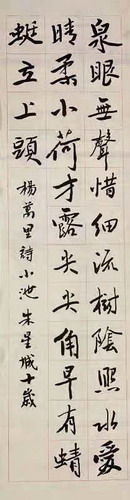 泉眼無聲惜細流樹陰照水愛
晴柔小荷才露尖尖角早有蜻
蜓立上頭
楊萬里詩小池朱星城十歲